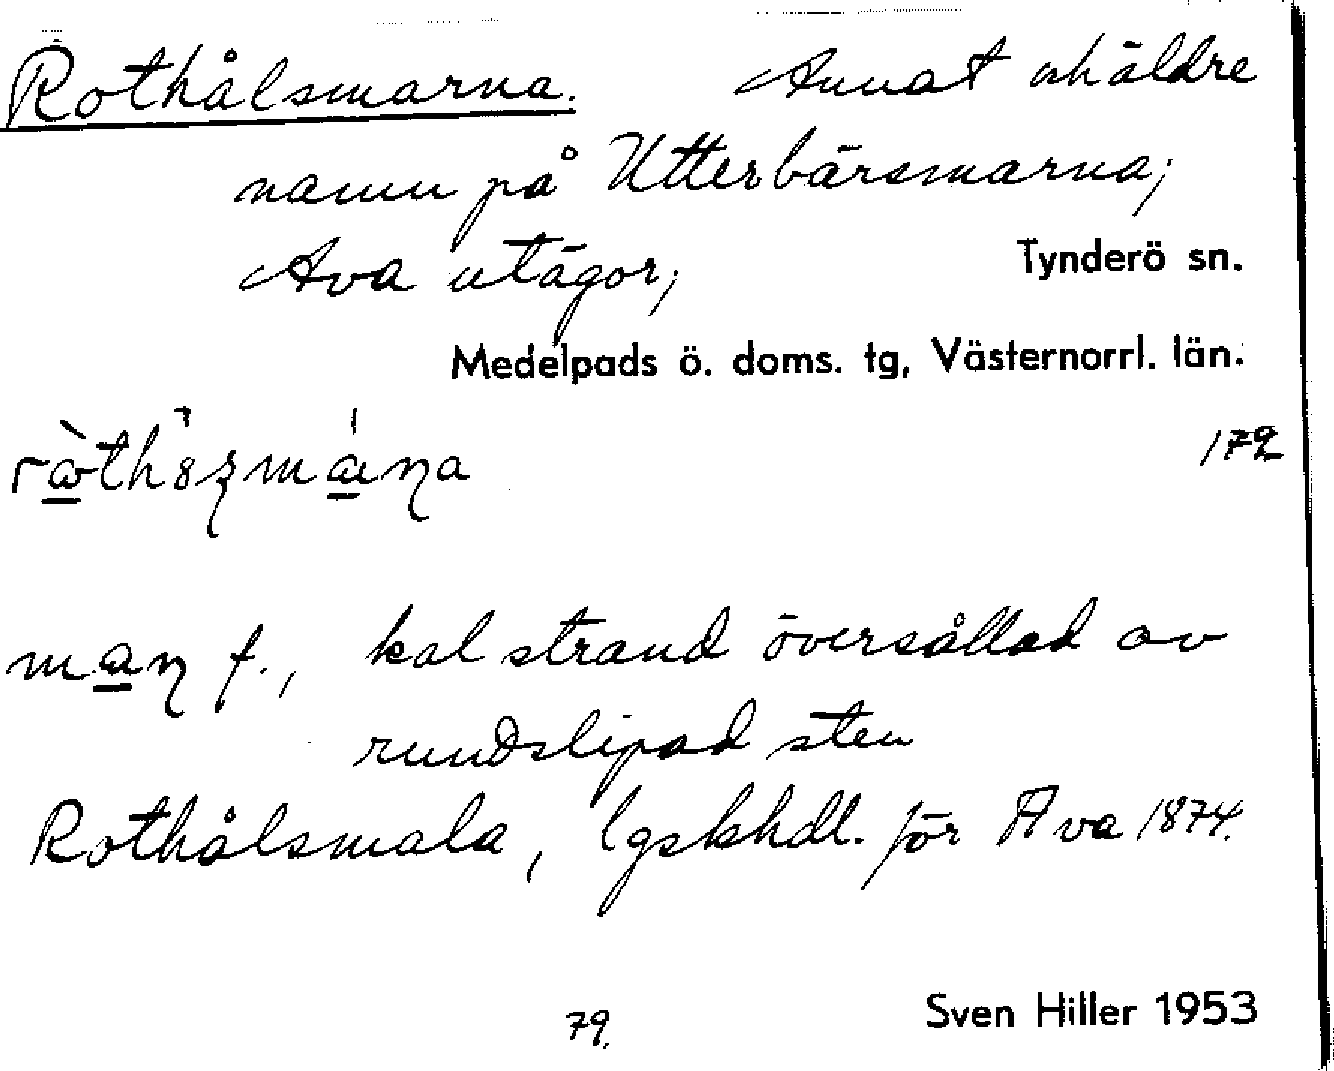 Rothålsmarna. Annat o häldre
namn på Utterbärsmarna;
Ava utägor; Tynderö sn.
Medelpads ö. doms. tg, Västernorrl. län.
172
f., kal strand översållad av
rundslipad sten
Rothålsmala, lgskhdl. för Ava 1874.
79. Sven Hiller 1953